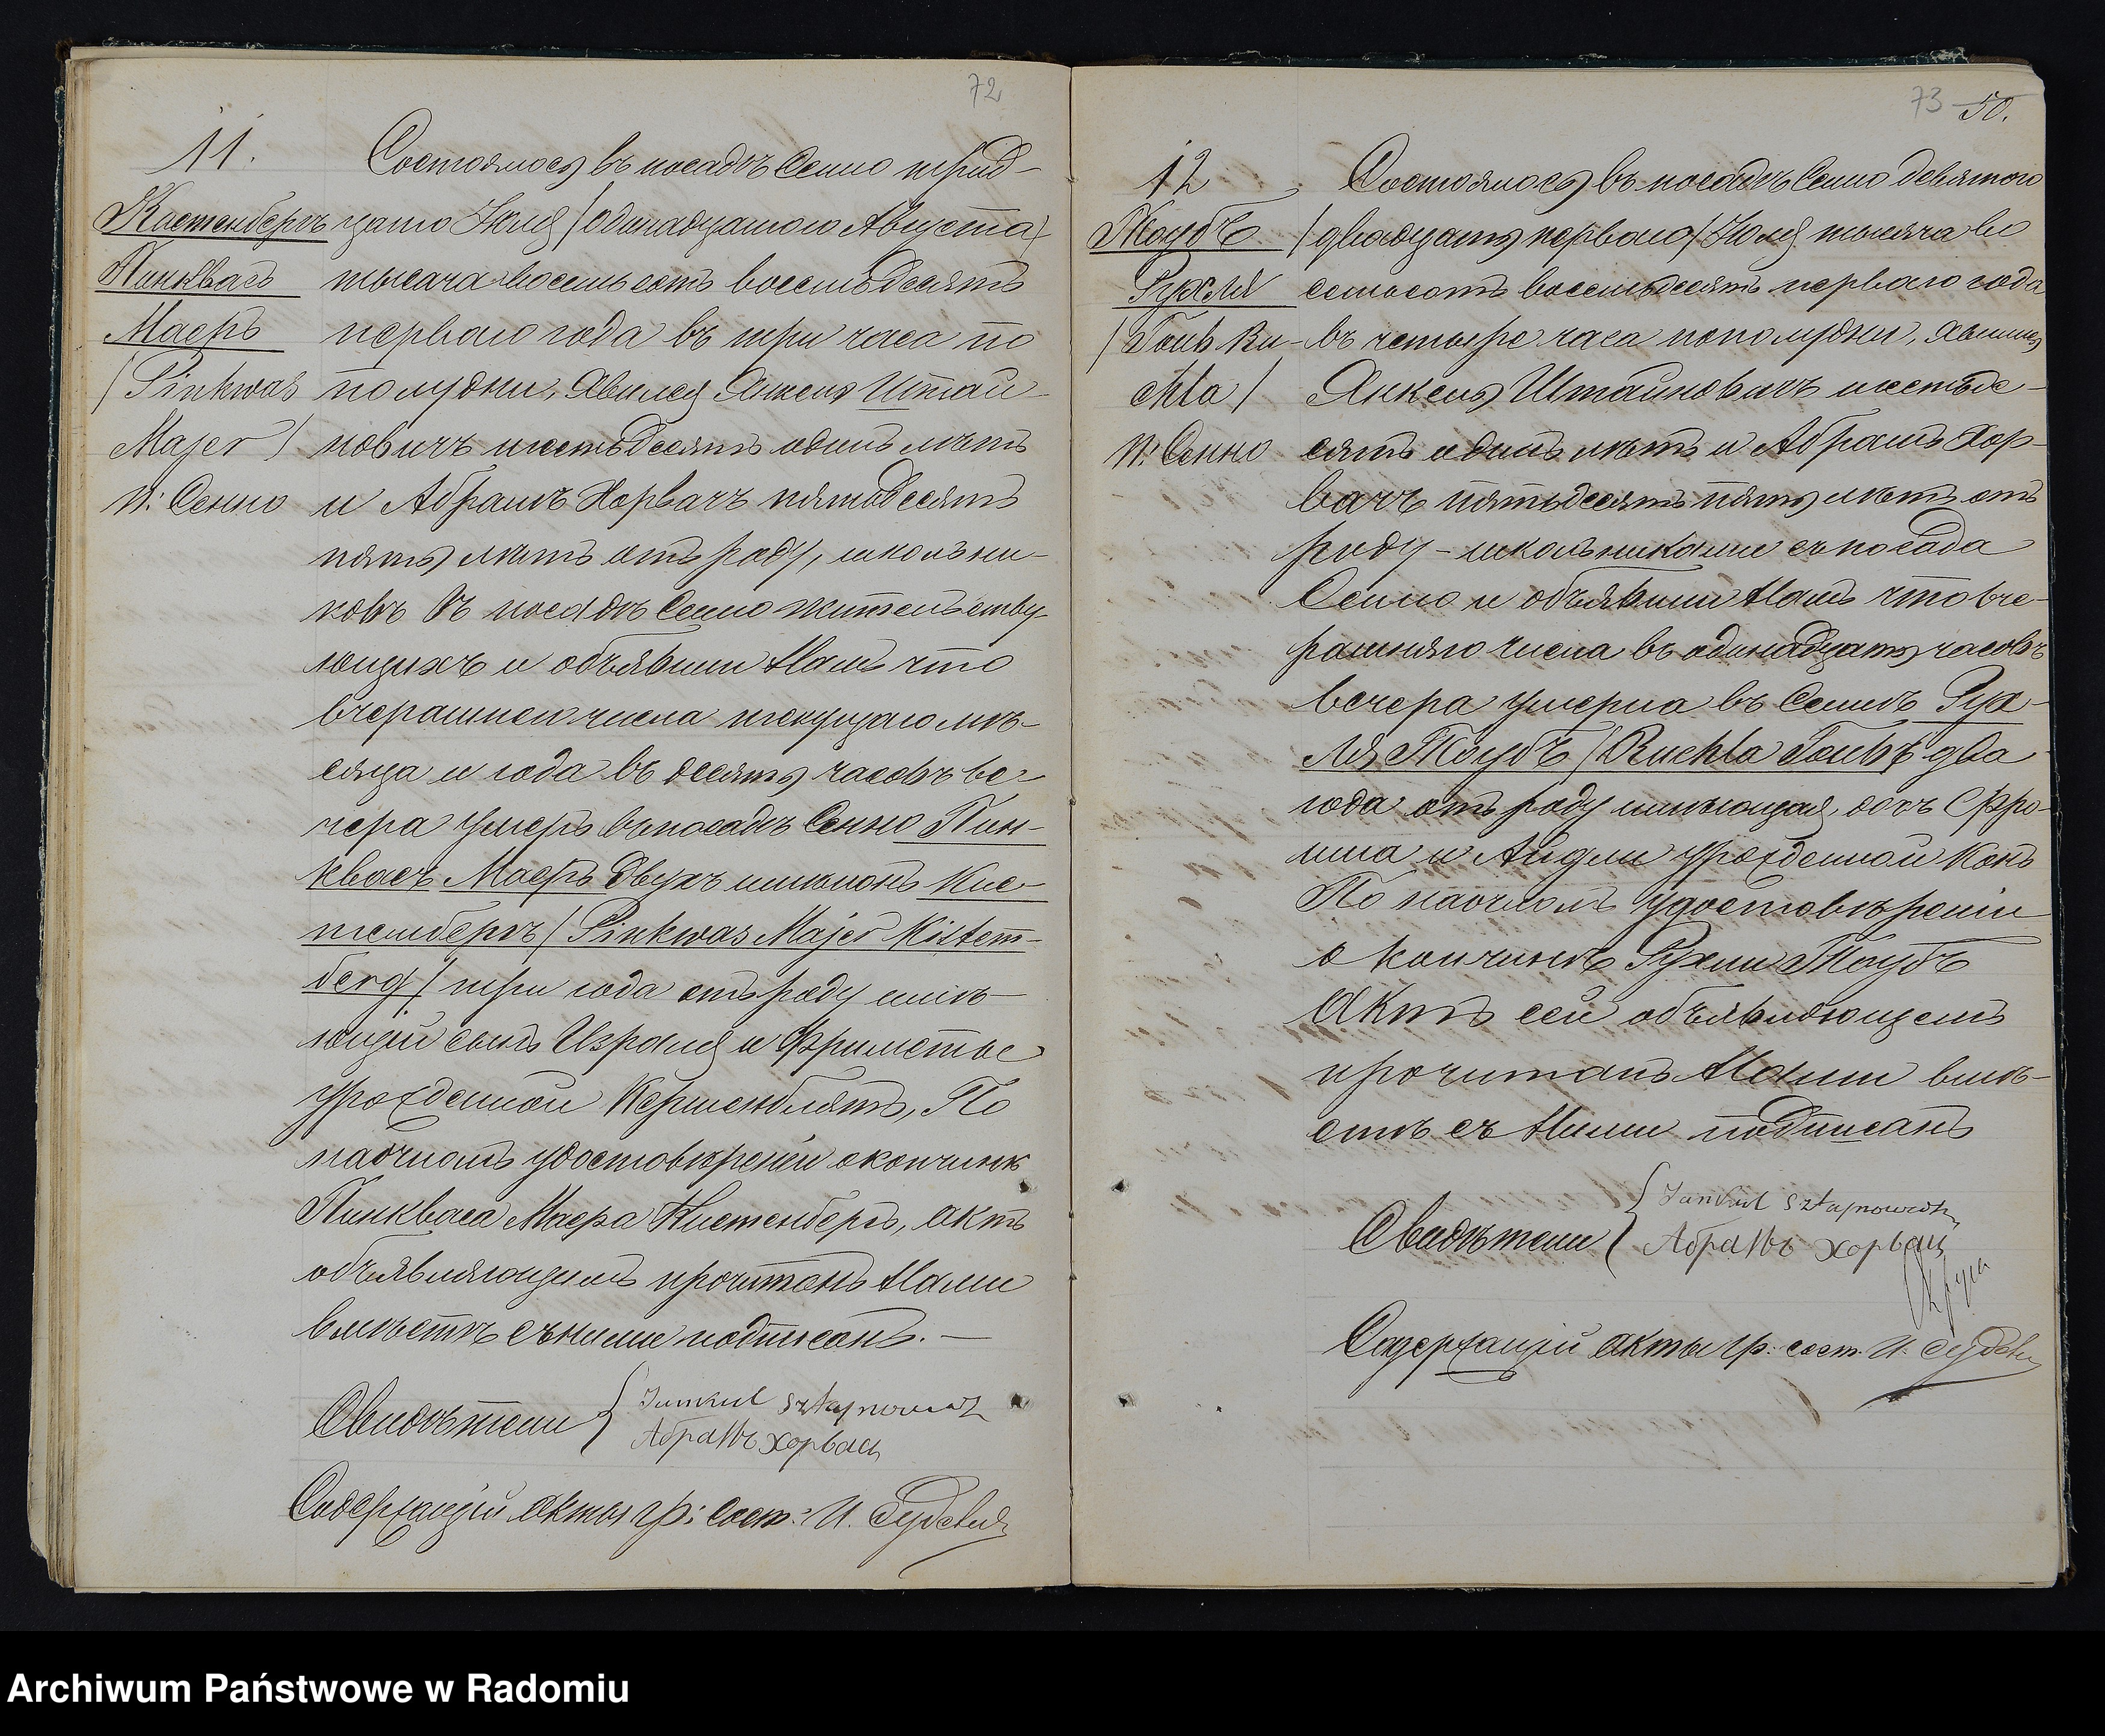 72
11.
Состоялось въ посадѣ Сенно трид-
Кистенбергъ
Пинквасъ
Маеръ
/Pinkwas
Majer/
п: Сенно
цатого Юля /одинадцатого Августа/
тысяча восемьсотъ восемьдесятъ
перваго года въ три часа по
полудни, Явился Янкель Штай-
новичъ шестьдесятъ одинъ лѣтъ
и Абрамъ Хорвачъ пятьдесятъ
пять лѣтъ отъ роду, школьни-
ковъ въ посадѣ Сенно жительству-
ющихъ и объявили Намъ что
вчерашнего числа текущаго мѣ-
сяца и года въ десять часовъ ве-
чера умеръ въ посадѣ Сенно Пин-
квасъ Маеръ двухъ именонъ Кис-
тембергъ /Pinkwas Majer Kistem-
berg/ три года отъ роду имѣ-
ющій сынъ Израиля и Фриметы
урожденной Кершенблятъ, По
наочномъ удостовѣреніи окончинѣ
Пинкваса Маера Кистенбергъ, актъ
объявляющимъ прочитанъ Нами
вмѣстѣ съ ними подписанъ. —
Свидѣтели { Jankiel Sztajnowicz
Абрамъ Хорвач
Содержащій Акты гр: сост: И.
73 50.
12
Таубъ
Рухля
/Taub Ru-
chla/
п: Сенно
Состоялось въ посадѣ Сенно девятого
/двадцать перваго/ Юля тысяча во
семьсотъ восемьдесятъ перваго года
въ четыре часа пополудни, явились
Янкель Штайновичъ шестьде-
сятъ одинъ лѣтъ и Абрамъ Хор-
вачъ пятьдесятъ пять лѣтъ отъ
роду - школьниками съ посада
Сенно и объявили Намъ что вче-
рашняго числа въ одинадцать часовъ
вечера умерла въ Сеннѣ Рух-
ля Таубъ /Ruchla Taub/ два
года отъ роду имѣющая, дочь Фро-
има и урожденной Конъ
По наочномъ удостовѣреніи
о кончинѣ Рухли Таубъ
Актъ сей объявляющемъ
прочитанъ Нами вмѣ-
стѣ съ Ними подписанъ
Свидѣтели { Jankiel Sztajnowicz
Абрамъ Хорвач
Содержащій акты гр: сост. И.
Archiwum Państwowe w Radomiu